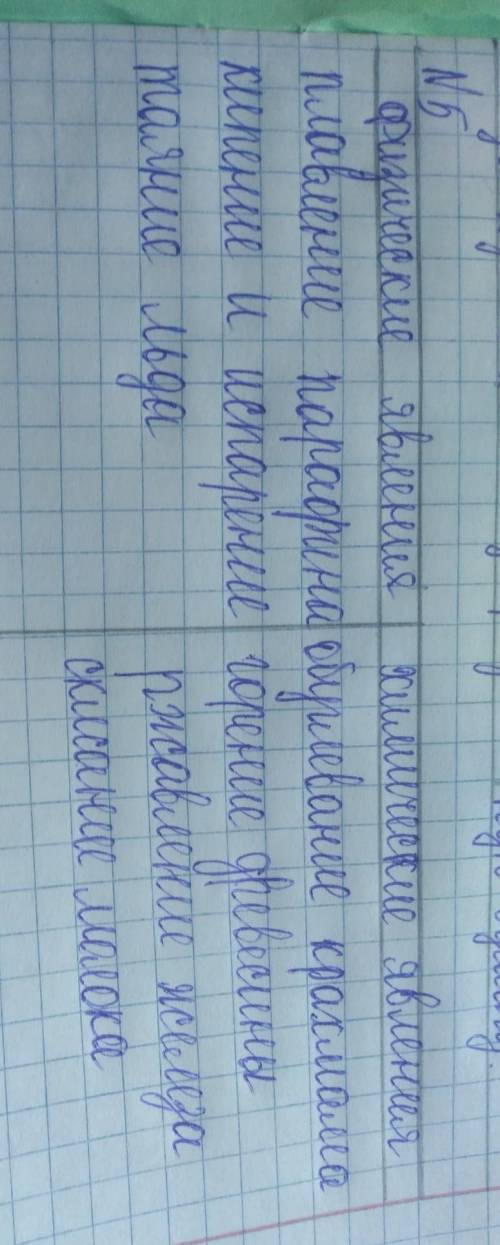 №5
физические явления химические явления
плавление парафина обуглевание крахмала
кипение и испарение горение древесины
таяние льда ржавление железа
скисание молока